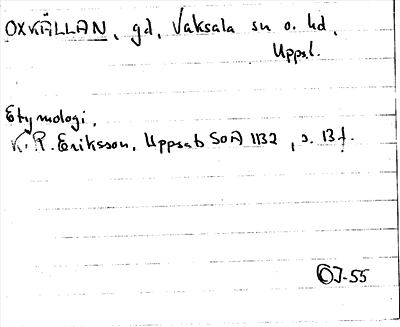 OXKÄLLAN, gd, Vaksala sn o. hd,
Uppl.
Etymologi,
K. R. Eriksson, Uppsats SOÄ 1132, s. 13 f.
OJ-55